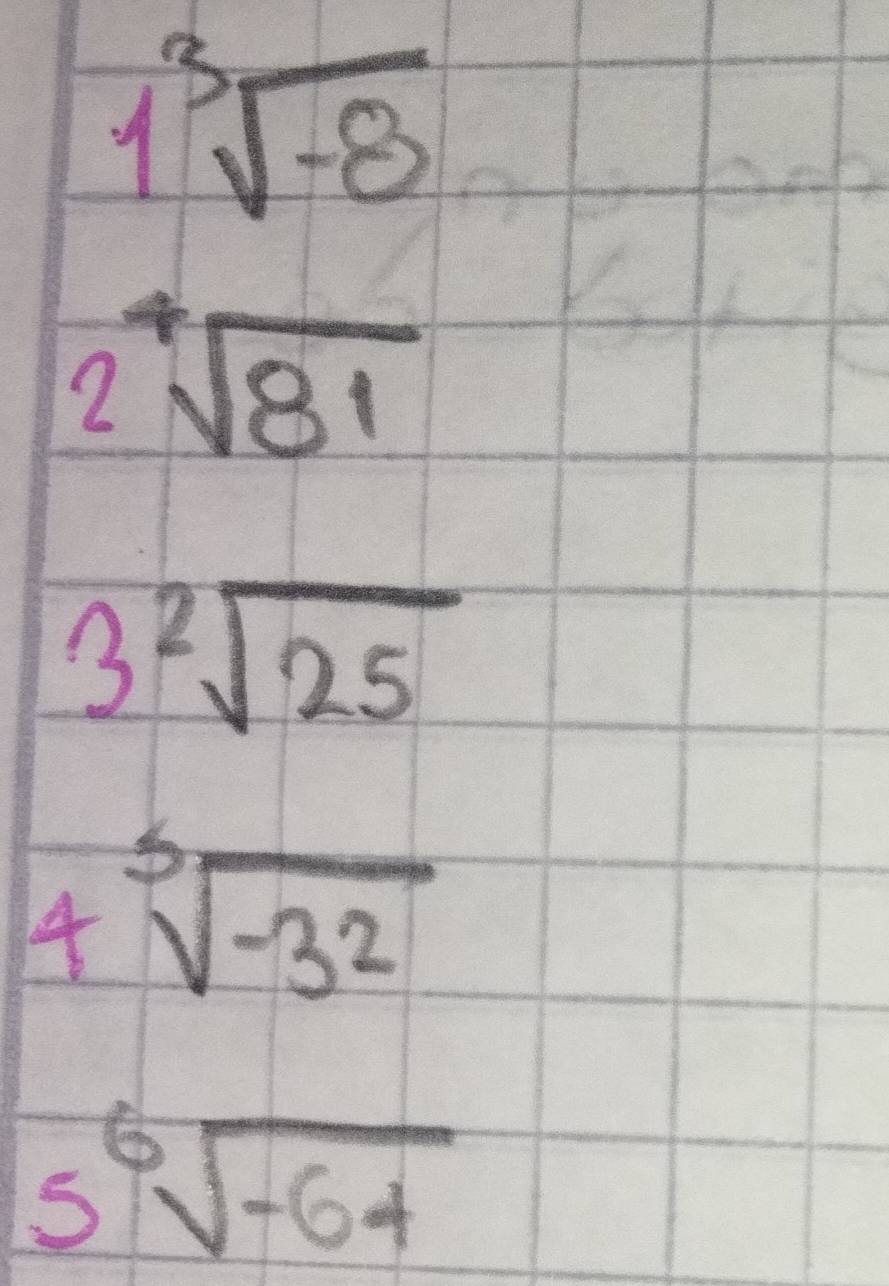 1 ³√-8
2 ⁴√81
3 ²√25
4 ⁵√-32
5 ⁶√-64